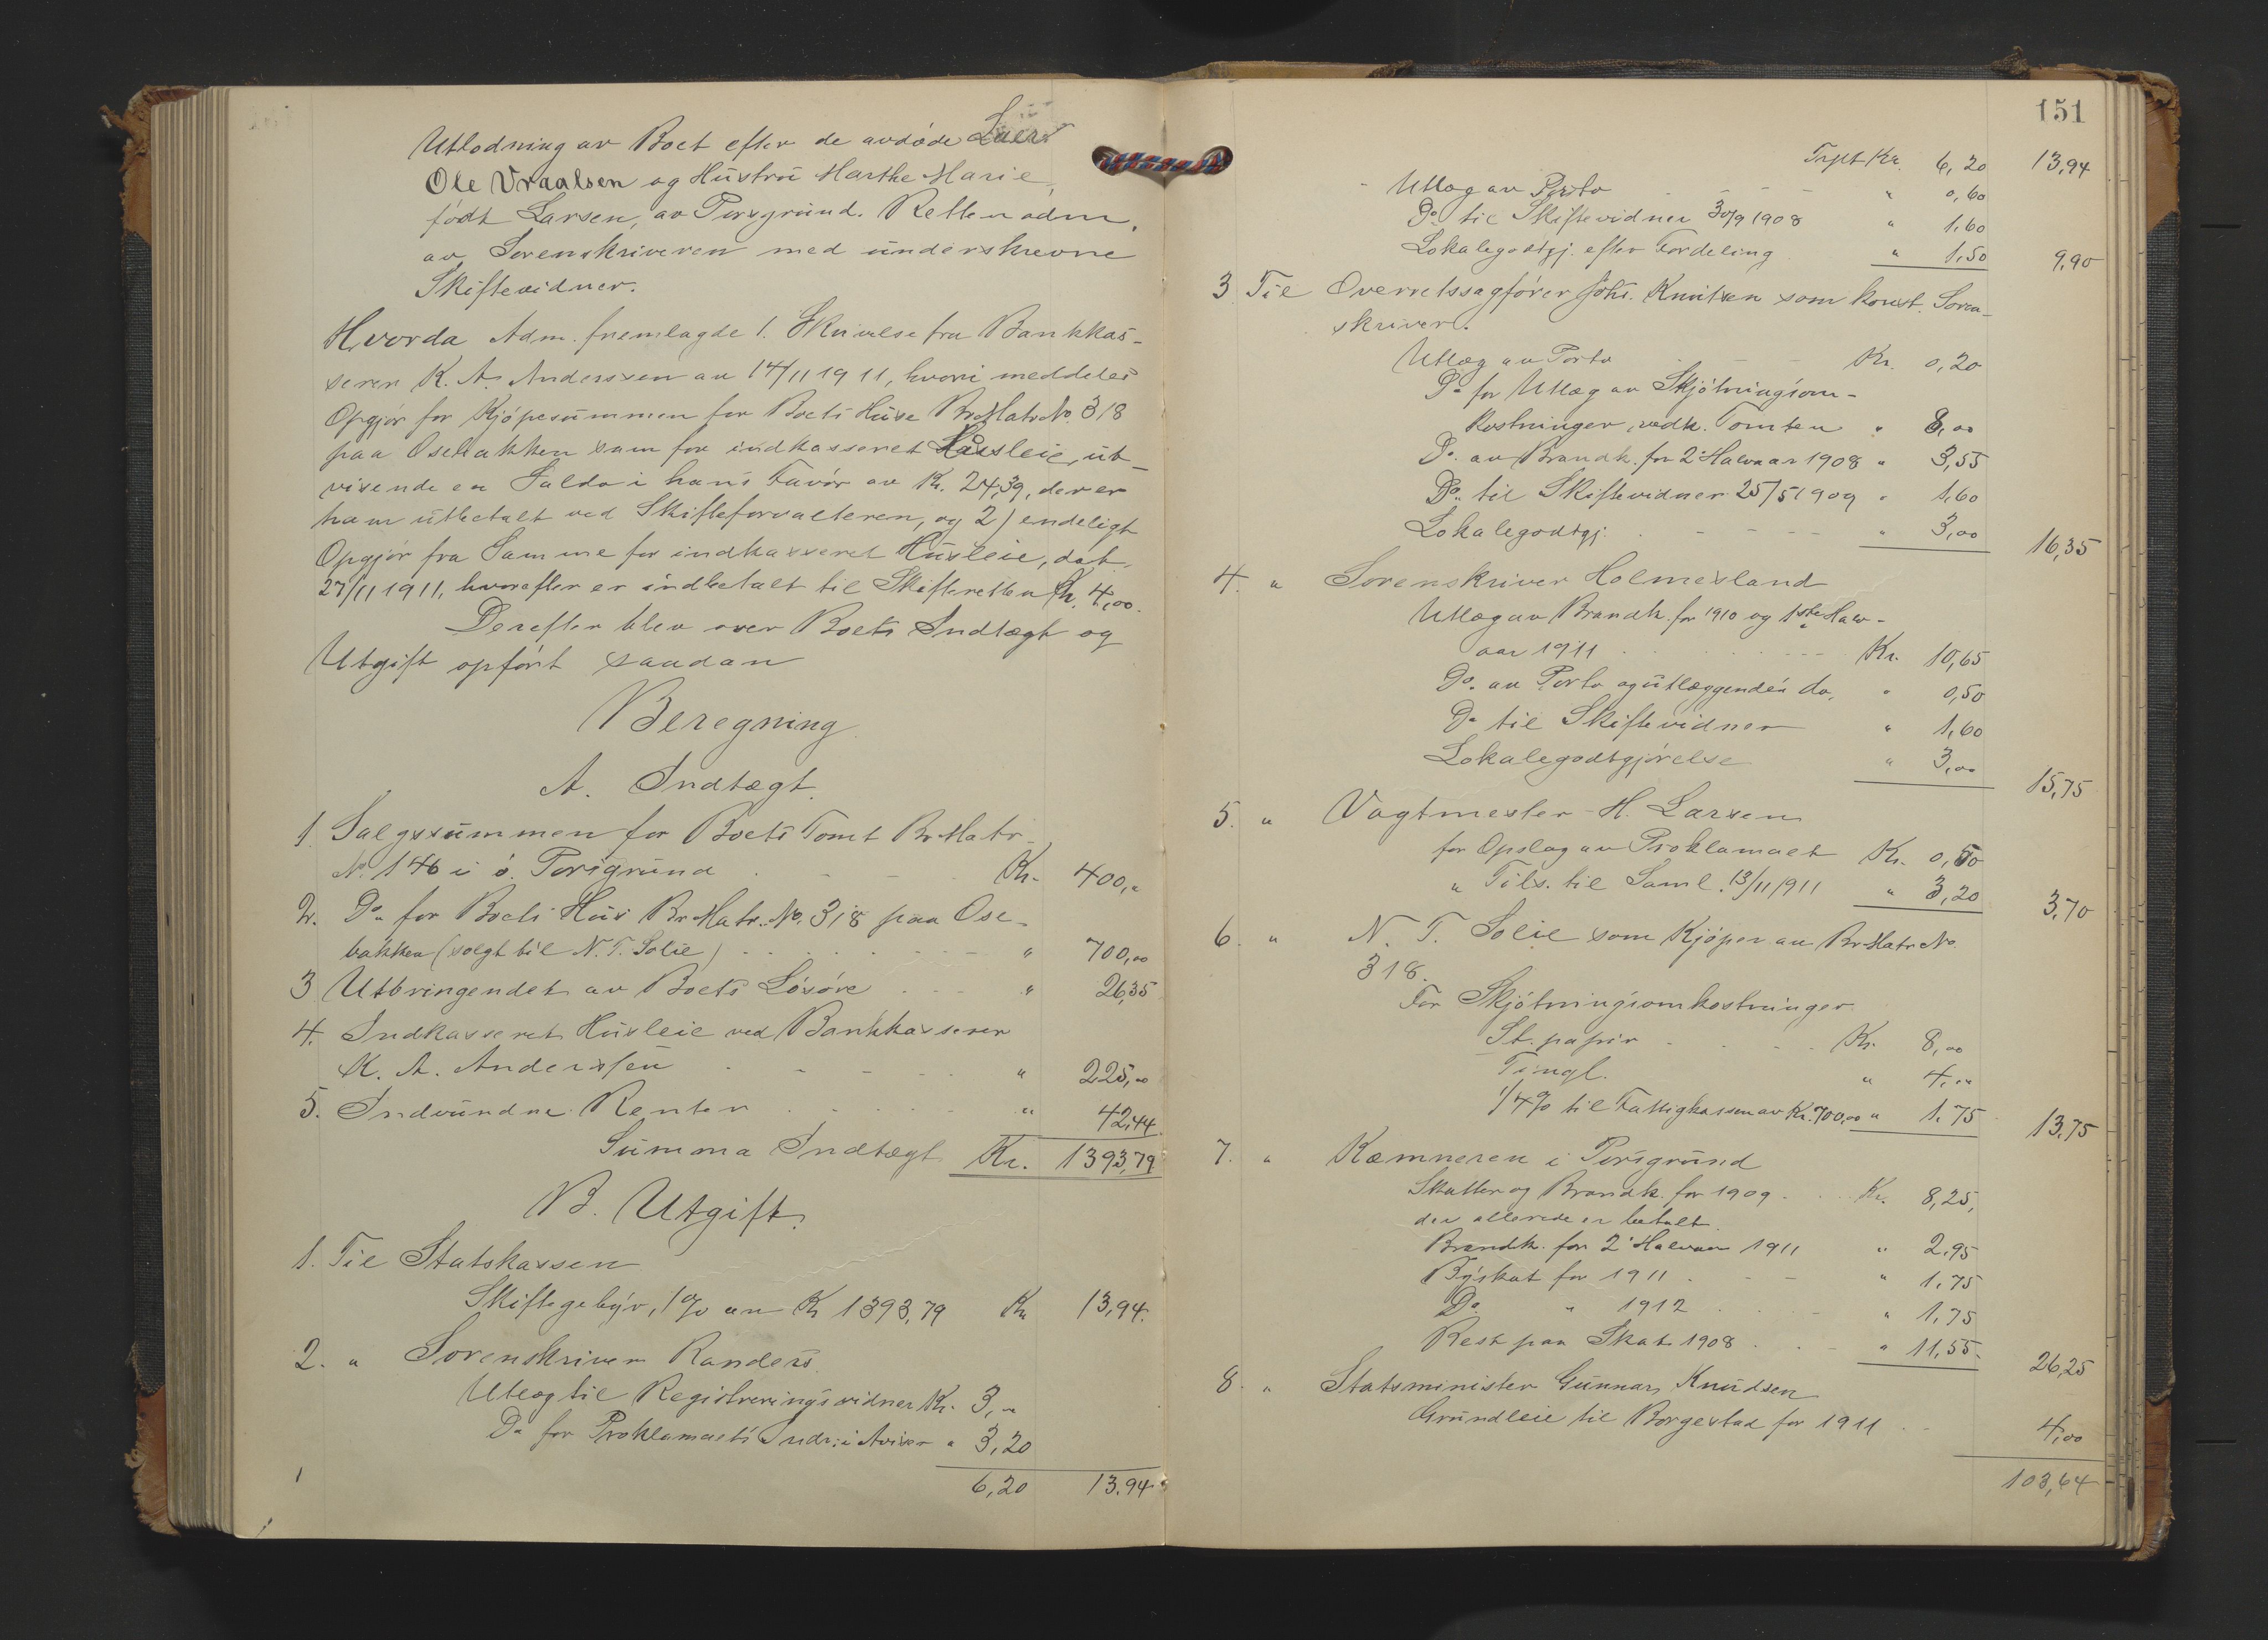 Utlodning av Boet efter de avdøde
Ole Vraalsen og Hustru Marthe Marie,
født Larsen, av Porsgrund. Retten adm.
av Sorenskriveren med underskrevne
Skiftevidner.
Hvorda Adm. fremlagde 1. Skrivelse fra Bankkas-
serer K. A. Anderssen av 14/11 1911, hvori meddeles
Opgjør for Kjøpesummen for Boets Huse Br. Matr. No. 318
paa Osebakken samt for indkasseret Husleie, ut-
visende en Saldo i hans Favør av Kr. 24,39, der er
ham utbetalt ved Skifteforvalteren, og 2) endeligt
Opgjør fra Samme for indkasseret Husleie, dat.
27/11 1911, hvorefter er indbetalt til Skifteretten Kr. 4,00.
Derefter blev over Boets Indtægt og
Utgift opført saadan
Beregning
A. Indtægt.
1. Salgssummen for Boets Tomt Br. Matr.
No. 146 i ø. Porsgrund . - - - Kr. 400,"
2. Do. for Boets Hus Br. Matr. No. 318 paa Ose-
bakken (solgt til N. T. Solie) . . . . - - " 700,00
3 Utbringendet av Boets Løsøre . . - - " 26,35
4. Indkasseret Husleie ved Bankkasserer
K. A. Anderssen . - - - . . " 225,00
5. Indvundne Renter . . . . . " 42,44
Summa Indtægt Kr. 1393,79
B. Utgift.
1. Til Statskassen
Skiftegebyr, 1% av Kr 1393,79 Kr 13,94.
2. " Sorenskriver Randers.
Utlæg til Registreringsvidner Kr. 3,"
Do for Proklamaets Indr. i Aviser " 3,20
6,20 13.94
151
Trpt Kr. 6,20 13,94
Utlæg av Porto - - - - " 0,60
Do. til Skiftevidner 30/9 1908 " 1,60
Lokalegodtgj. efter Fordeling " 1,50 9,90
3. Til Overretssagfører Johs. Knutsen som konst. Soren-
skriver.
Utlæg av Porto . - - - Kr. 0,20
Do for Utlæg av Skjøtningsom-
kostninger, vedk. Tomten " 8,00
Do. av Brandk. for 2. Halvaar 1908 " 3,55
Do. til Skiftevidner 25/5 1909 " 1,60
Lokalegodtgj. . - - - - " 3,00 16,35
4. " Sorenskriver Holmesland
Utlæg av Brandk. for 1910 og 1ste Halv-
aar 1911 . . . . - - - Kr. 10,65
Do. av Porto og utlæggende do. " 0,50
Do til Skiftevidner " 1,60
Lokalegodtgjørelse " 3,00 15,75
5. " Vagtmester H. Larsen
for Opslag av Proklamaet Kr. 0,50
" Tils. til Saml. 13/11 1911 " 3,20 3,70
6. " N. T. Solie som Kjøper av Br. Matr. No.
318.
For Skjøtningsomkostninger.
St. papir . . . . - Kr. 8,00
Tingl. " 4,"
1/4% til Fattigkassen av Kr. 700,00 " 1,75 13,75
7. " Kæmneren i Porsgrund
Skatter og Brandk. for 1909 . . . Kr. 8,25,
der allerede er betalt.
Brandk. for 2. Halvaar 1911 " 2,95
Byskat for 1911 . - - " 1,75
Do. " 1912 . . . - " 1,75
Rest paa Skat 1908 . . - " 11,55. 26,25
8. " Statsminister Gunnar Knudsen
Grundleie til Borgestad for 1911 . . 4,00
103,64